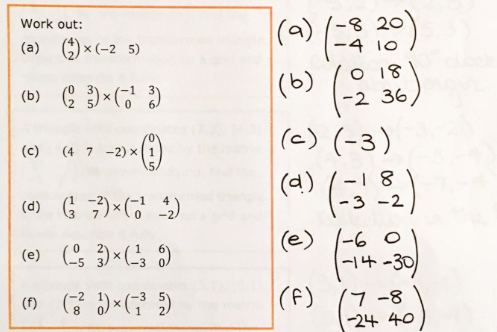 Work out:
(a) (4 2) × (-2 5)
(b) (0 3 2 5) × (-1 3 0 6)
(c) (4 7 -2) × (0 1 5)
(d) (1 -2 3 7) × (-1 4 0 -2)
(e) (0 2 -5 3) × (1 6 -3 0)
(f) (-2 1 8 0) × (-3 5 1 2)
(a) (-8 20
-4 10)
(b) (0 18
-2 36)
(c) (-3)
(d) (-1 8
-3 -2)
(e) (-6 0
-14 -30)
(f) (7 -8
-24 40)